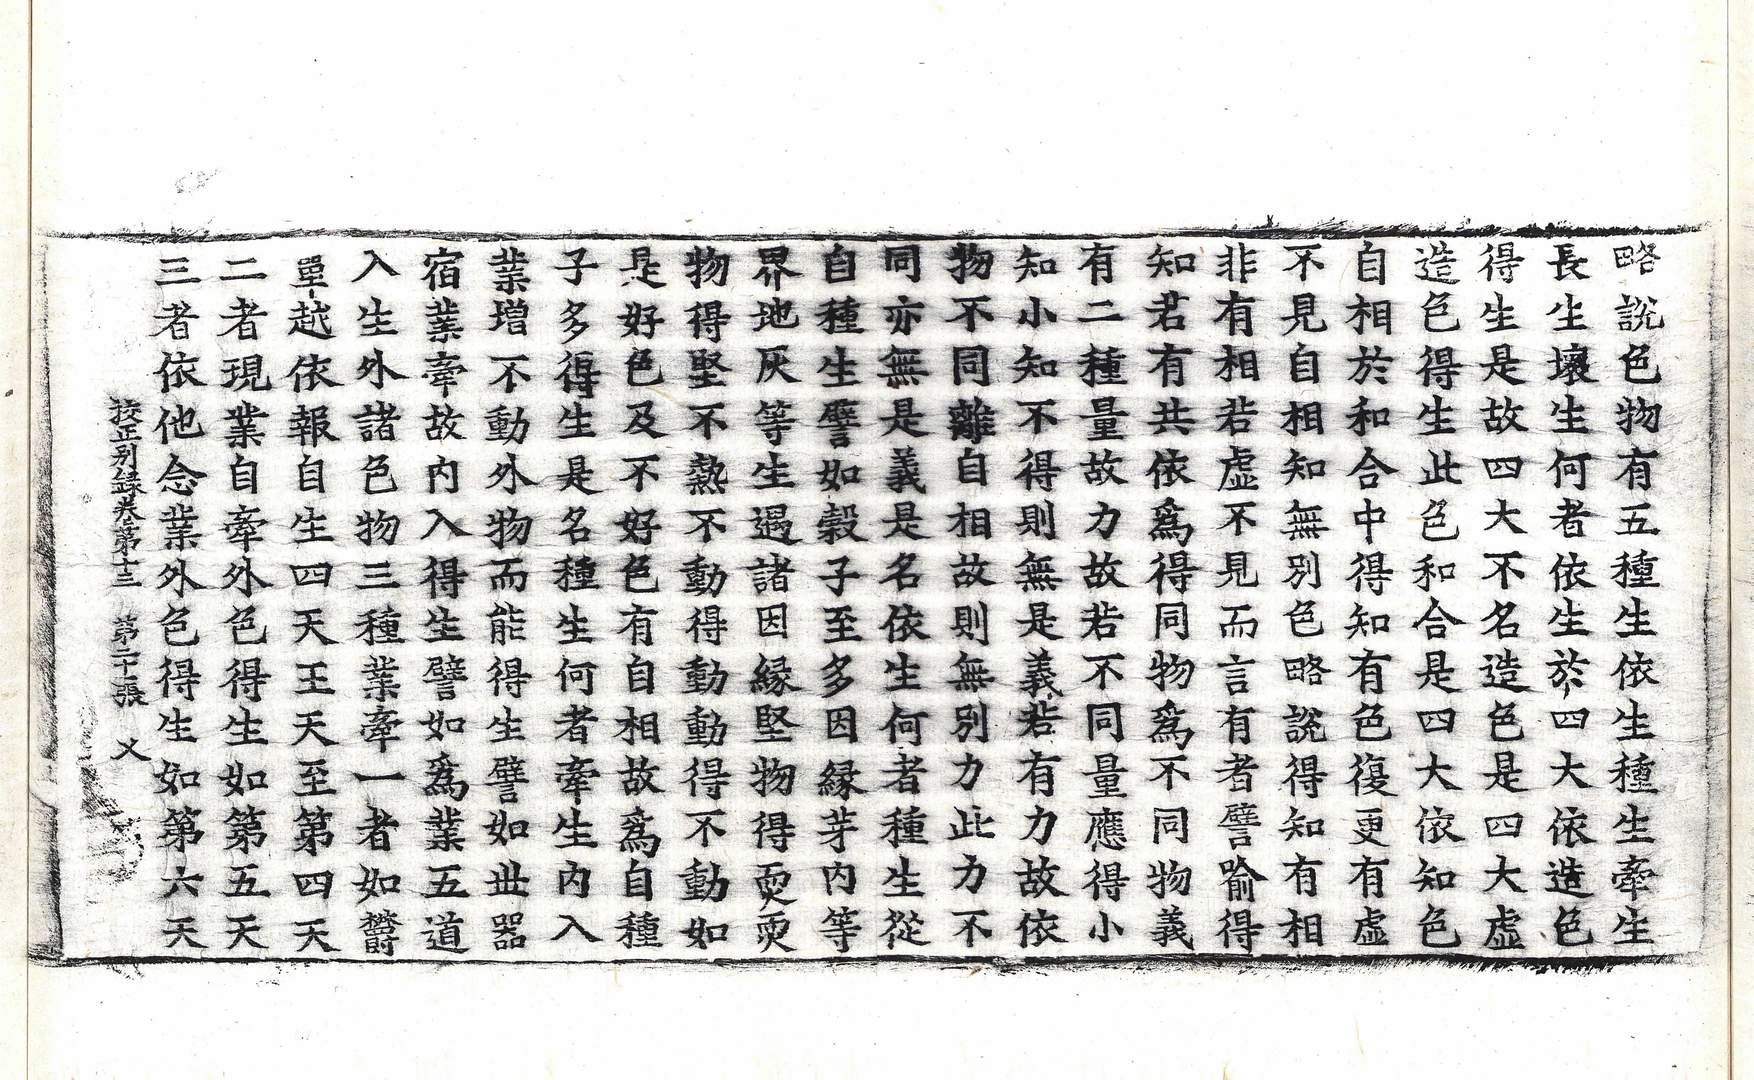 略說色物有五種生依生種生牽生
長生壞生何者依生於四大依造色
得生是故四大不名造色是四大虛
造色得生此色和合是四大依知色
自相於和合中得知有色復更有虛
不見自相知無別色略說得知有相
非有相若虛不見而言有者譬喻得
知若有共依爲得同物爲不同物義
有二種量故力故若不同量應得小
知小知不得則無是義若有力故依
物不同離自相故則無別力此力不
同亦無是義是名依生何者種生從
自種生譬如穀子至多因緣芽內等
界地灰等生過諸因緣堅物得耎耎
物得堅不熱不動得動動得不動如
是好色及不好色有自相故爲自種
子多得生是名種生何者牽生內入
業增不動外物而能得生譬如世器
宿業牽故內入得生譬如爲業五道
入生外諸色物三種業牽一者如欝
單越依報自生四天王天至第四天
二者現業自牽外色得生如第五天
三者依他念業外色得生如第六天
挍正別錄卷第十三 第二十張 乂